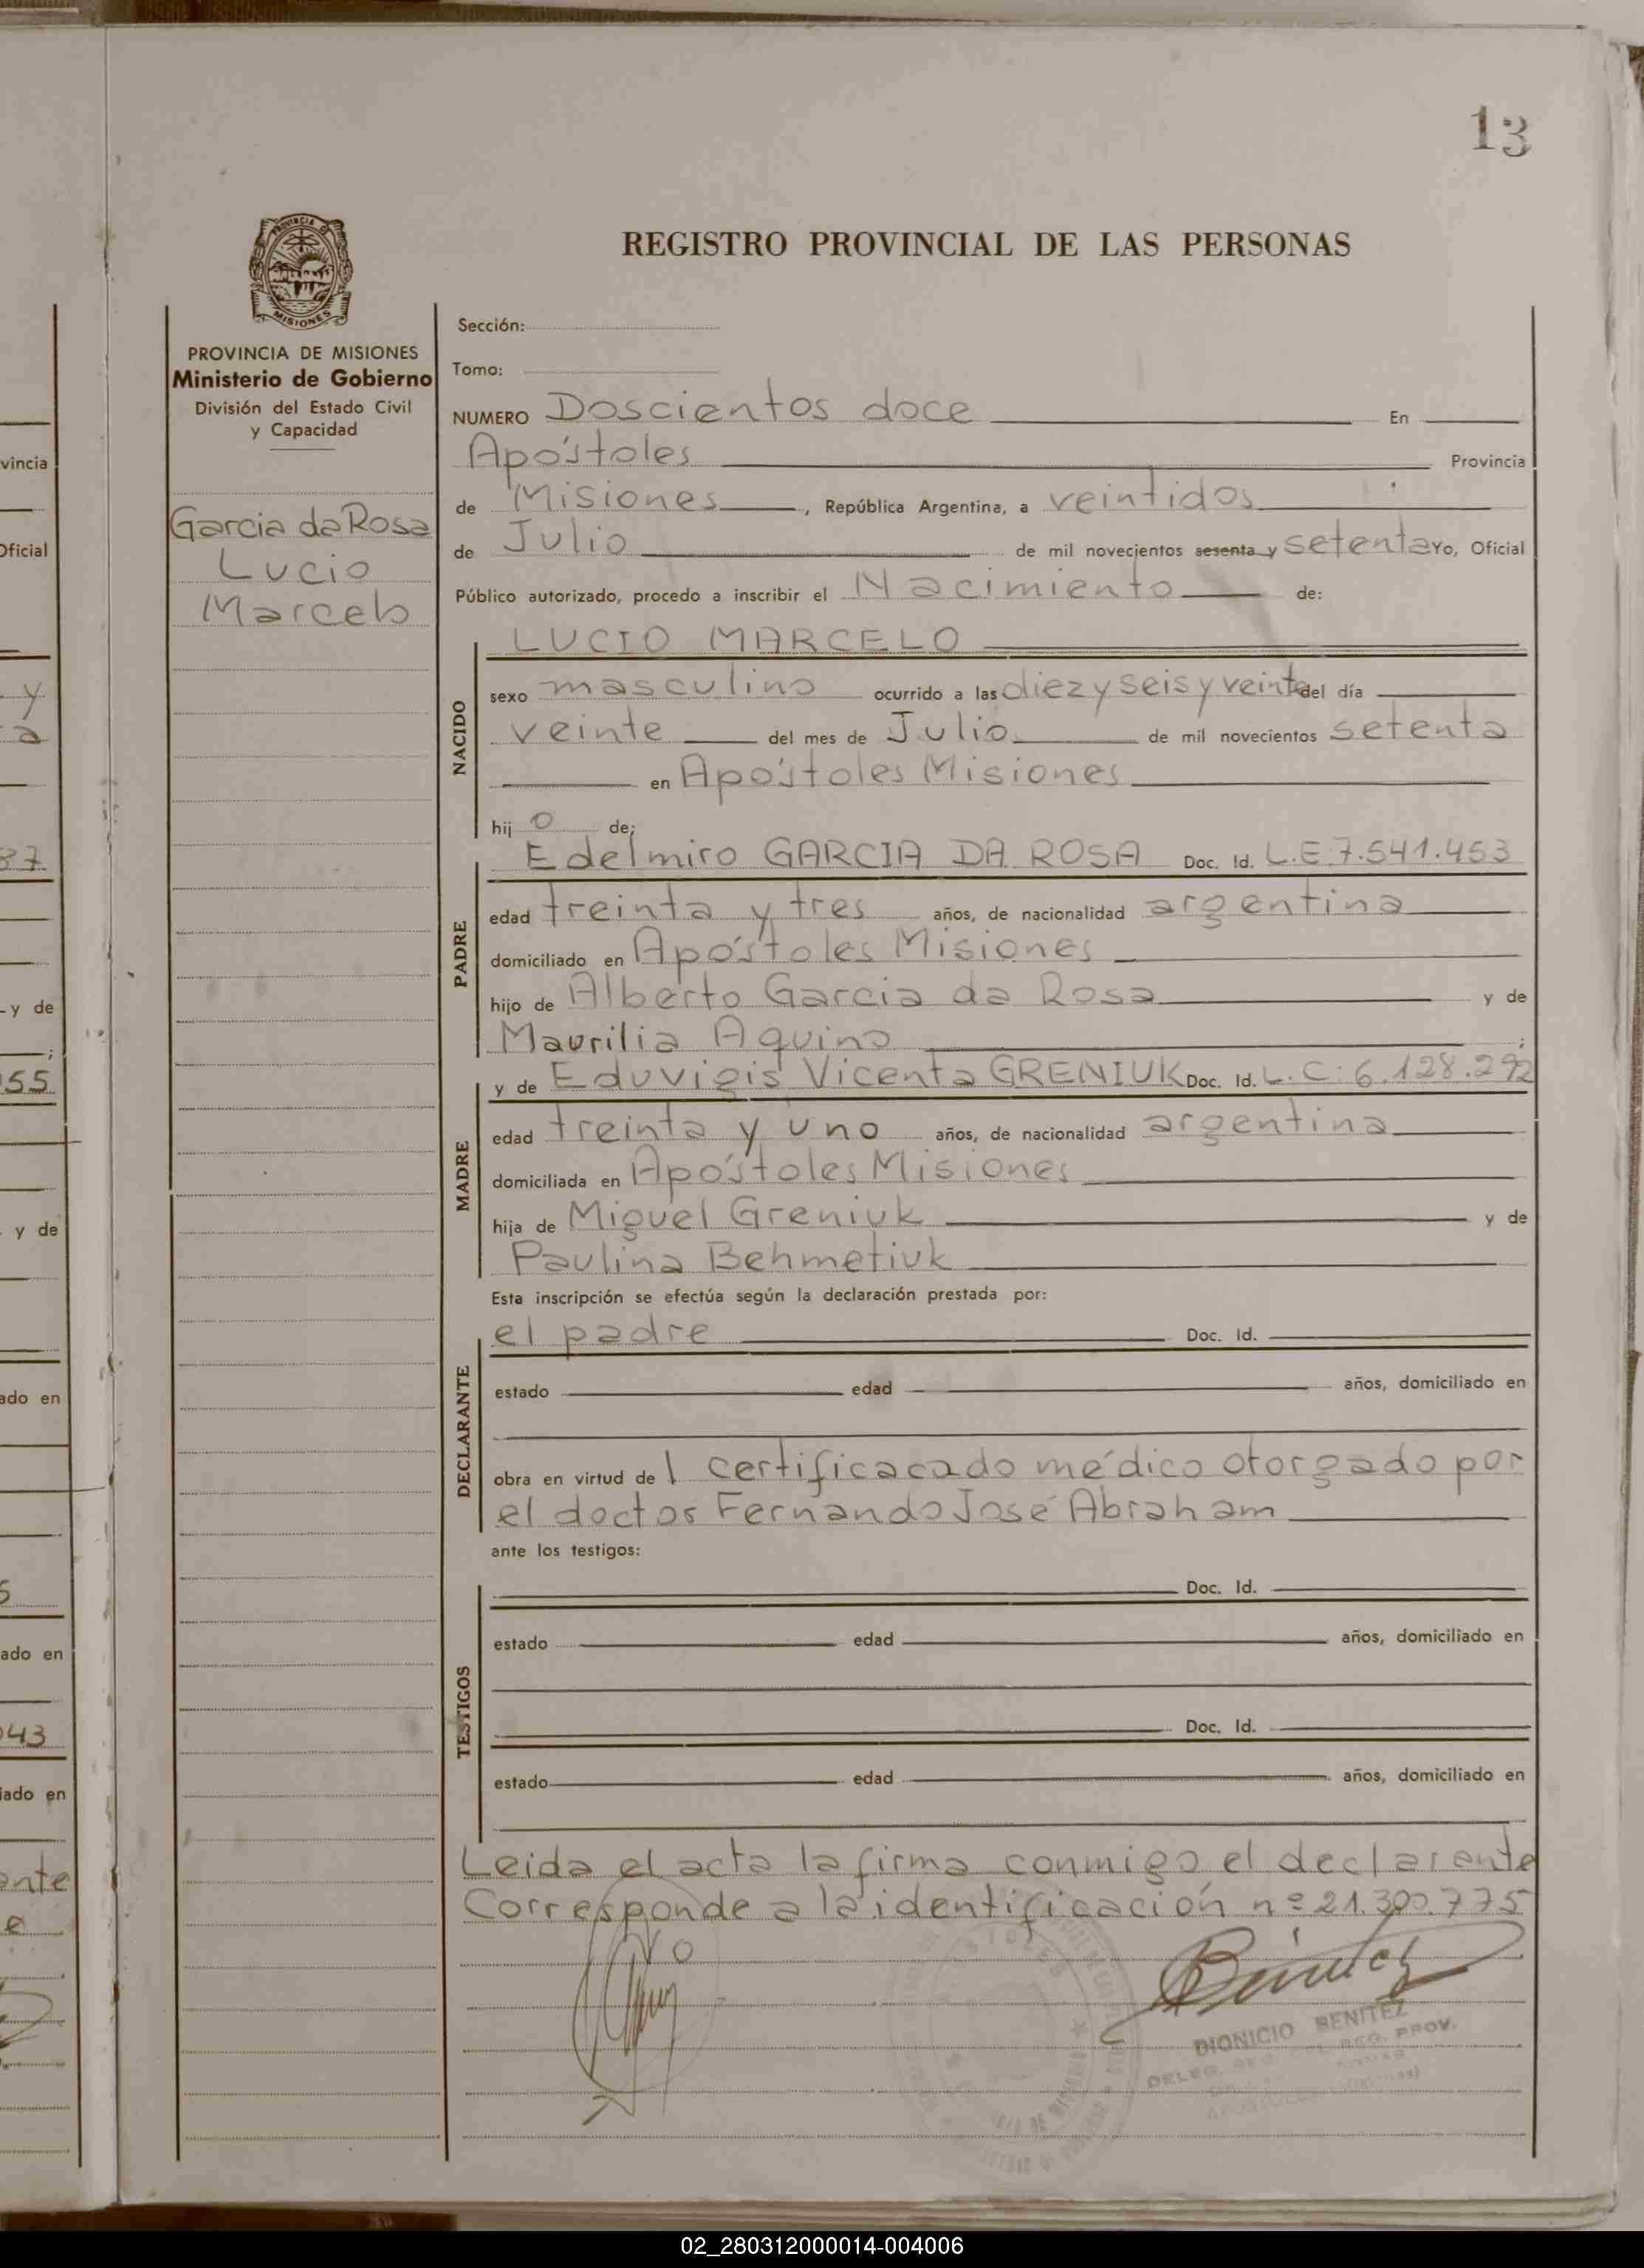 13
PROVINCIA DE
MISIONES
REGISTRO PROVINCIAL DE LAS PERSONAS
PROVINCIA DE MISIONES
Ministerio de Gobierno
División del Estado Civil
y Capacidad
Garcia da Rosa
Lucio
Marcelo
Sección:
Tomo:
NUMERO Doscientos doce En
Apóstoles Provincia
de Misiones, República Argentina, a veintidos
de Julio de mil novecientos sesenta y setenta Yo, Oficial
Público autorizado, procedo a inscribir el Nacimiento de:
NACIDO
LUCIO MARCELO
sexo masculino ocurrido a las diez y seis y veinte del día
veinte del mes de Julio de mil novecientos setenta
en Apóstoles Misiones
hijo de:
PADRE
Edelmiro GARCIA DA ROSA Doc. Id. L.E.7.541.453
edad treinta y tres años, de nacionalidad argentina
domiciliado en Apóstoles Misiones
hijo de Alberto Garcia da Rosa y de
Maurilia Aquino ;
MADRE
y de Eduvigis Vicenta GRENIUK Doc. Id. L.C:6.128.292
edad treinta y uno años, de nacionalidad argentina
domiciliada en Apóstoles Misiones
hija de Miguel Greniuk y de
Paulina Behmetiuk
Esta inscripción se efectúa según la declaración prestada por:
DECLARANTE
el padre Doc. Id.
estado edad años, domiciliado en
obra en virtud de l certificacado médico otorgado por
el doctor Fernando José Abraham
ante los testigos:
TESTIGOS
Doc. Id.
estado edad años, domiciliado en
Doc. Id.
estado edad años, domiciliado en
Leida el acta la firma conmigo el declarente
Corresponde a la identificación nº 21.300.775
DIONICIO BENITEZ
REG. PROV.
vincia
Oficial
y
a
37
y de
55
y de
ado en
ado en
43
iado en
ente
e
02_280312000014-004006